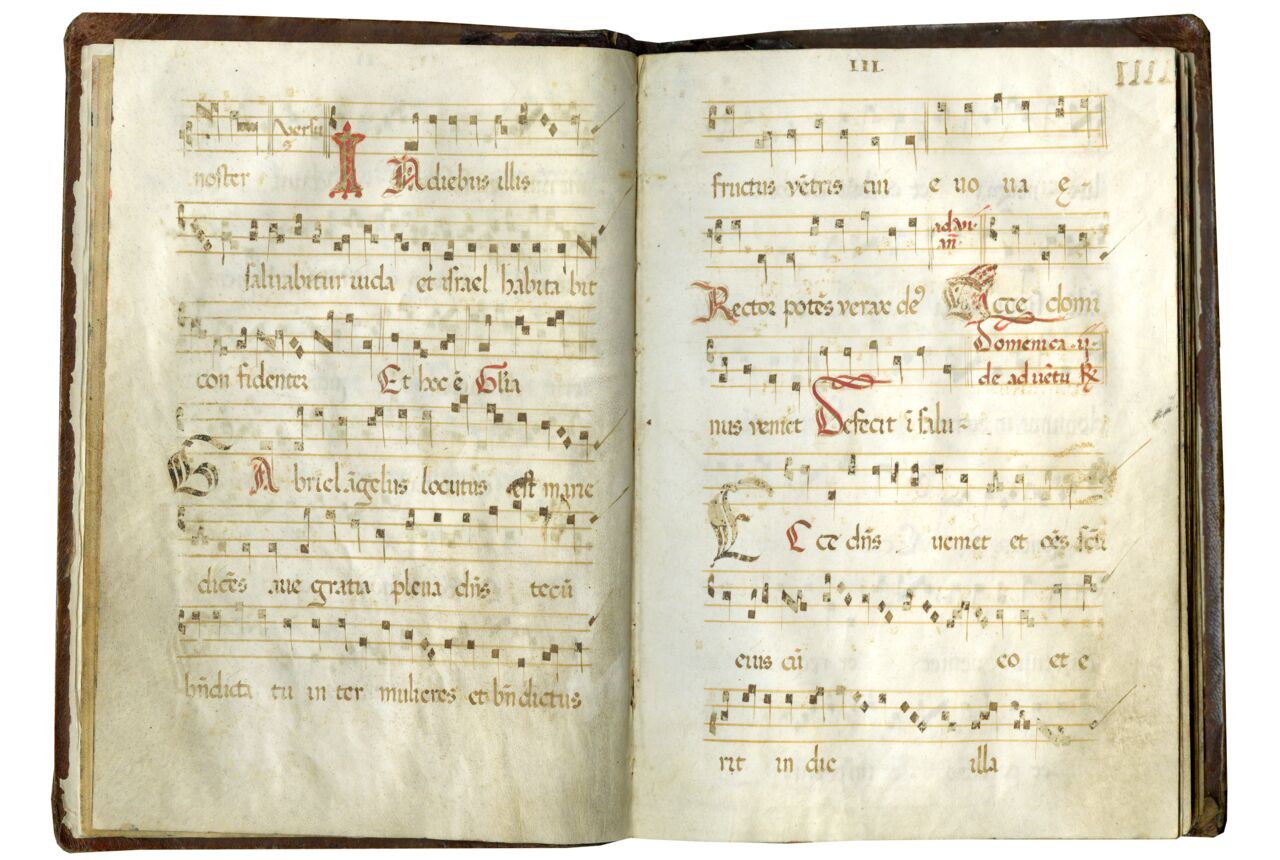 versu
noster I N diebus illis
salvabitur iuda et israel habita bit
con fidenter Et hoc ē Glīa
G A briel āgelus locutus est marie
dicēs aue gratia plena dn̄s tecū
bn̄dicta tu in ter mulieres et bn̄dictus
III
IIII
fructus vētris tui e uo ua e
Rector potēs verax de⁹ Ecce domi
Domenica ij
de aduētu
nus veniet Defecit ī salu
E C ce dn̄s veniet et oēs sc̄i
eius cū eo et e
rit in die illa